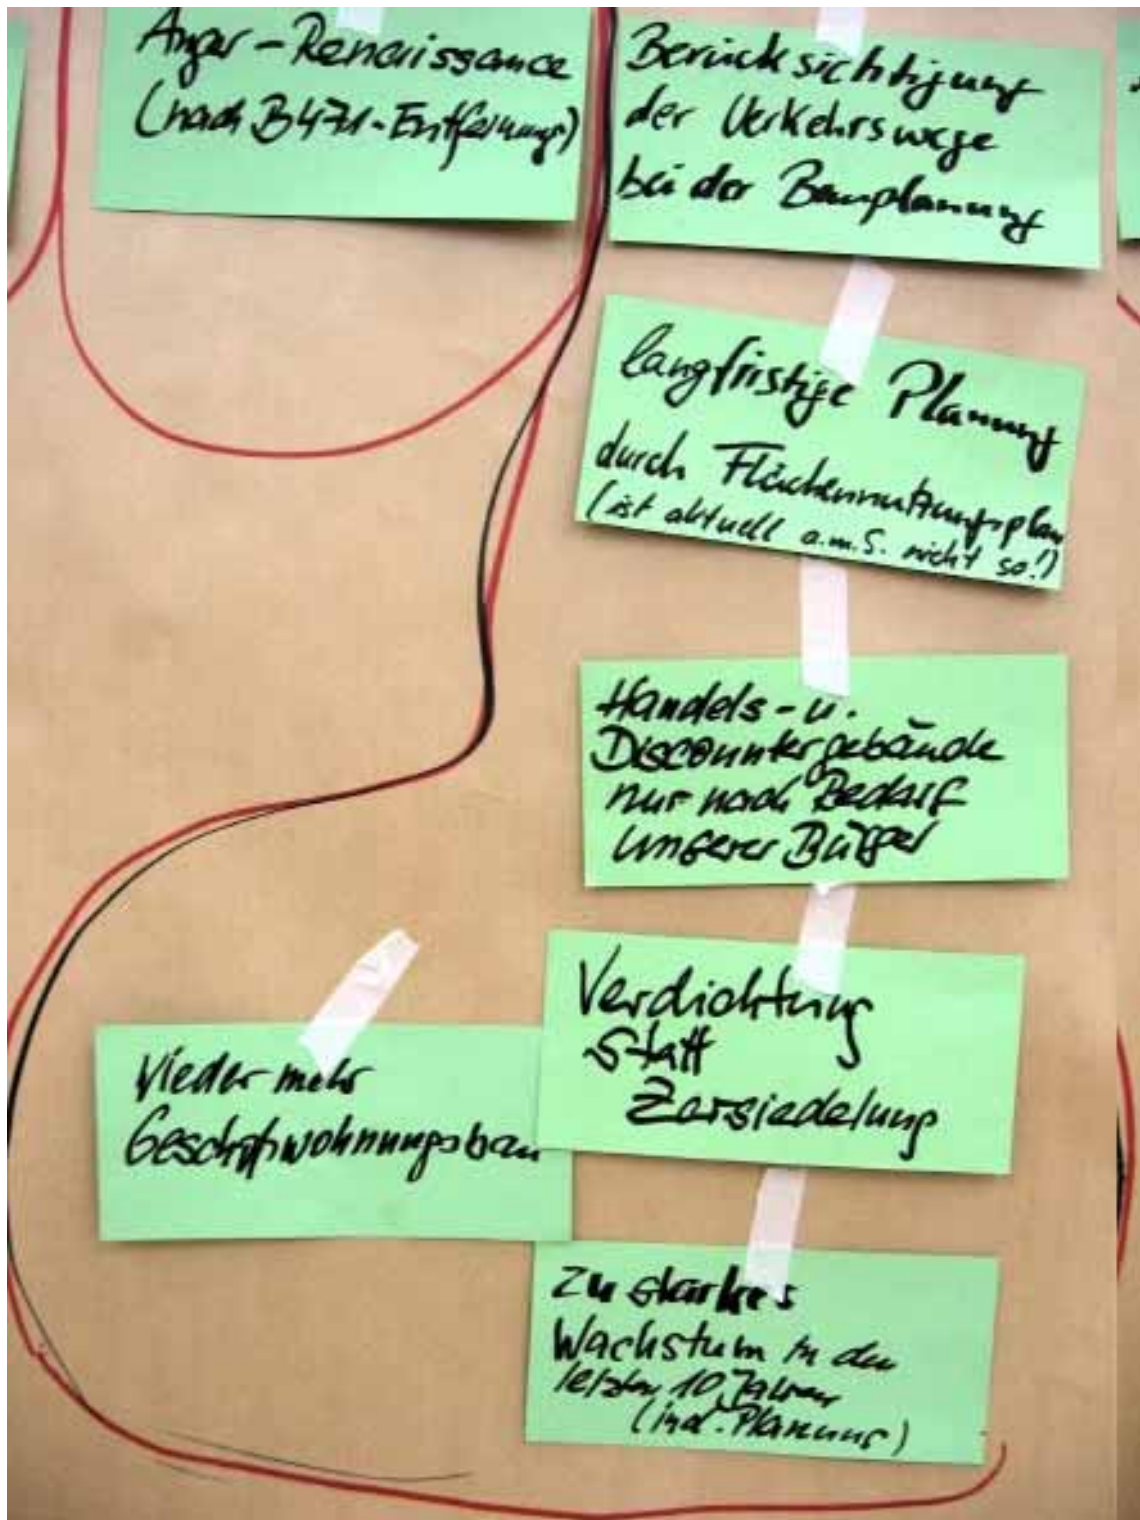 Anger-Renaissance
(nach B471-Entfernung)
Berücksichtigung
der Verkehrswege
bei der Bauplanung
langfristige Planung
durch Flächennutzungsplan
(ist aktuell a.m.S. nicht so!)
Handels- u.
Discountergebäude
nur nach Bedarf
unserer Bürger
Verdichtung
statt
Zersiedelung
Wieder mehr
Geschoßwohnungsbau
Zu starkes
Wachstum in den
letzten 10 Jahren
(incl. Planung)